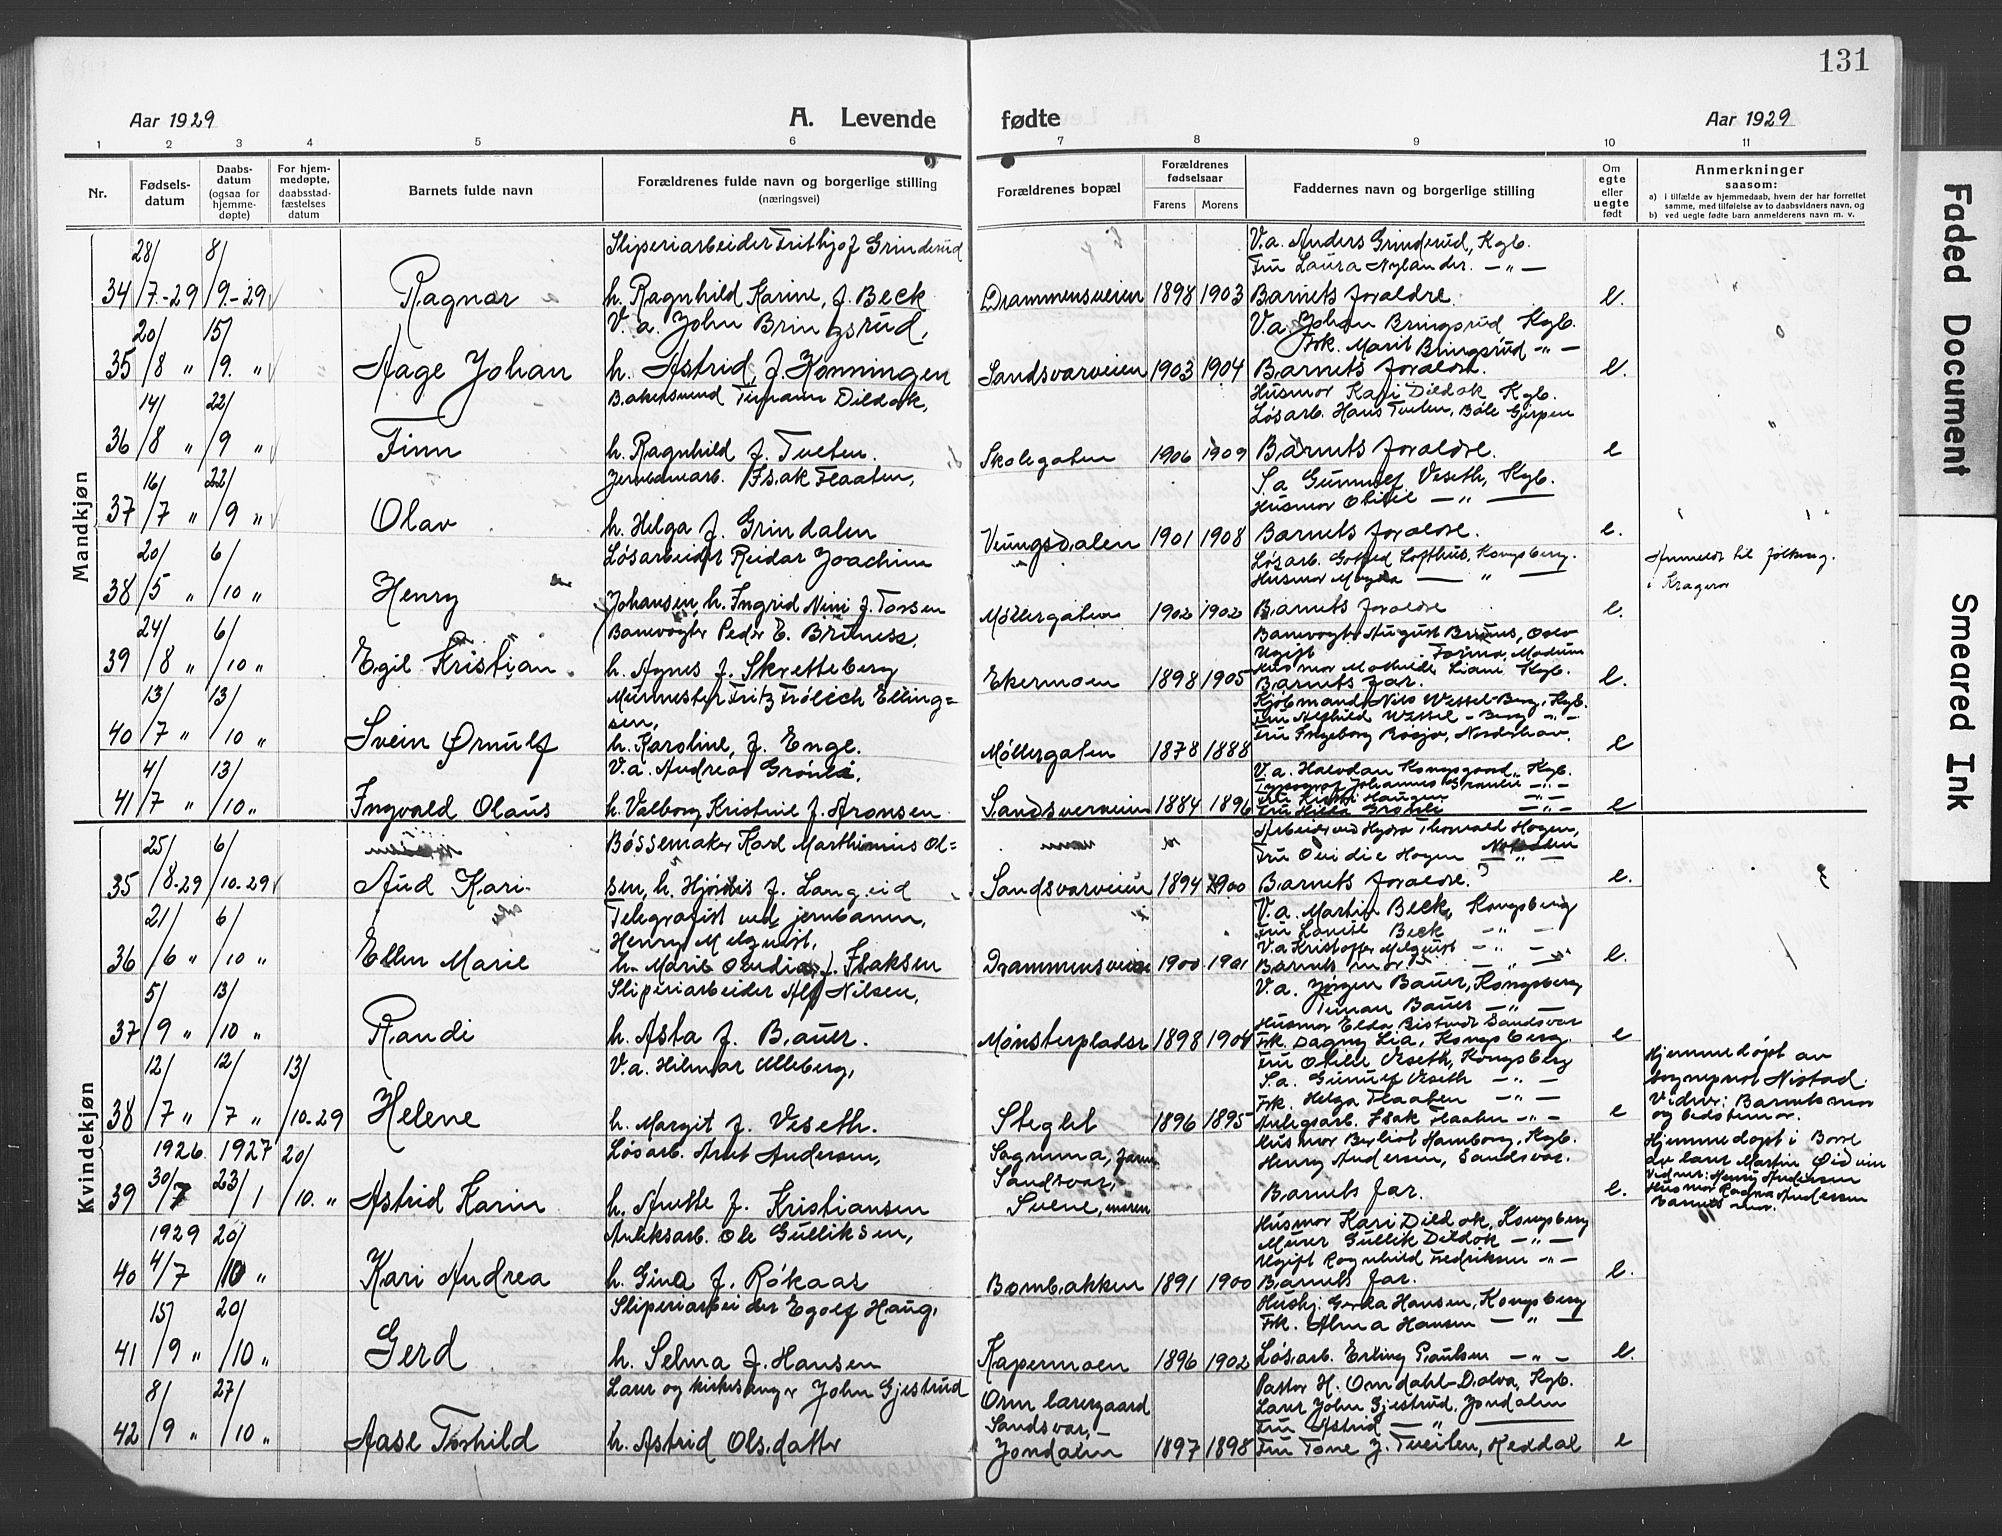 131
Aar 1929
A. Levende fødte
Aar 1929
1 2 3 4 5 6 7 8 9 10 11
Nr.
Fødsels-
datum
Daabs-
datum
(ogsaa for
hjemme-
døpte)
For hjem-
medøpte,
daabsstad-
fæstelses
datum
Barnets fulde navn
Forældrenes fulde navn og borgerlige stilling
(næringsvei)
Forældrenes bopæl
Forældrenes
fødselsaar
Farens Morens
Faddernes navn og borgerlige stilling
Om
egte
eller
uegte
født
Anmerkninger
saasom:
a) i tilfælde av hjemmedaab, hvem der har forrettet
samme, med tilføielse av to daabsvidners navn, og
b) ved uegte fødte barn anmelderens navn m. v.
Mandkjøn
34 28/7-29 8/9-29 Ragnar
Sliperiarbeider Frithjof Grinderud
h. Ragnhild Karine, f. Beck
Drammensveien 1898 1903
V.a. Anders Grinderud, Kgb.
Fru Laura Nylander. — " —
Barnets foraldre.
e.
35 20/8 " 15/9. " Aage Johan
V. a. John Bringsrud,
h. Astrid, f. Kønningen
Sandsvarveien 1903 1904
V.a. Johan Bringsrud Kgb.
Frk. Marit Bringsrud — " —
Barnets foraldre.
e.
36 14/8 " 22/9 " Finn
Bakersvend Tidemann Dildok,
h. Ragnhild f. Tveten.
Skolegaten 1906 1909
Husmor Kari Dildok Kgb.
Løsarb. Hans Tveten, Bøle Gjerpen
Barnets foraldre.
e
37 16/7 " 22/9 " Olav
Jernbanearb. Isak Flaaten,
h. Helga f. Grindalen
Veungsdalen 1901 1908
S. a Gunnulf Veseth, Kgb.
Husmor Otilie — " —
Barnets foraldre.
e.
38 20/5 " 6/10 " Henry
Løsarbeider Reidar Joachim
Johansen, h. Ingrid Nini f. Torsen
Møllergaten 1902 1902
Løsarb. Gotfred Lofthus, Kongsberg.
Husmor Magda — " —
Barnets foraldre
e.
Anmeldt til folkereg.
i Kragerø
39 24/8 " 6/10 " Egil Kristian.
Banevogter Peder E. Brunes,
h. Agnes f. Skretteberg
Ekermoen 1898 1905
Banevogter August Brunes, Oslo
Ugift Torma, Modum
Husmor Mathilde Liani Kgb.
Barnets far.
e.
40 13/7 " 13/10 " Svein Ørnulf
Murmester Fritz Frölich Elling=
sen,
h. Karoline, f. Enge.
Møllergaten 1878 1888
Kjøbmand Nils Wessel-Berg, Kgb.
Fru Alfhild Wessel-Berg — " —
Fru Ingeborg Rosjø, Nordstrand.
e
41 4/7 " 13/10 " Ingvald Olaus
V.a. Andreas Grønli,
h. Valborg Kristine f. Aronsen
Sandsverveien 1884 1896
V.a. Halvdan Kongsgaard, Kgb.
Typograf Johannes Grønlie — " —
Frk. Kirsti Haugen — " —
Fru Hilda Grønli — " —
e
Kvindekjøn
35 25/8-29 6/10-29 Aud Kari
Bøssemaker Karl Marthinius Ol=
sen, h. Hjördis f. Langeid
Sandsvarveien 1894 1900
Arbeider ved Hydro Thorvald Hagen,
Fru Ovidie Hagen Notodden
Barnets foraldre.
e.
36 21/6 " 6/10 " Ellen Marie
Telegrafist ved jernbanen,
Henry Melquist,
h. Marie Oludia f. Isaksen
Drammensveien 1900 1901
V.a. Martin Beck, Kongsberg
Fru Louise Beck — " —
V.a Kristoffer Melquist — " —
Barnets mor — " —
e.
37 5/9 " 13/10 " Randi
Sliperiarbeider Alf Nilsen,
h. Asta f. Bauer.
Mønsterpladsen 1898 1904
V.a. Jørgen Bauer, Kongsberg
Einar Bauer — " —
Husmor Elda Bistrudt Sandsvar
Frk. Dagny Lia, Kongsberg.
e
38 12/7 " 12/7 " 13/10-29 Helene
V.a. Hilmar Ulleberg,
h. Margit f. Veseth.
Steglet 1896 1895
Fru Otilie Veseth, Kongsberg
S.a. Gunulf Veseth — " —
Frk. Helga Flaaten — " —
Anlegsarb. Isak Flaaten — " —
e
Hjemmedøpt av
sogneprest Nistad.
Vidner: Barnets mor
og bedstemor.
39 1926 30/7 1927 23/1 20/10. " Astrid Karin
Løsarb. Arnt Andersen,
h. Anette f. Kristiansen
Sagmma, faren
Sandsvar,
Svene, moren
Husmor Berliot Hamborg, Kgb.
Henry Andersen, Sandsvar.
Barnets far.
e.
Hjemmedøpt i Borre
av lærer Martin Øidvin
Vidner: Henry Andersen
Husmor Ragna Andersen
barnets mor.
40 1929 4/7 20/10 " Kari Andrea
Anleksarb. Ole Gulliksen,
h. Gina f. Røkaas
Bombakken 1891 1900
Husmor Kari Dildok, Kongsberg
Murer Gullik Dildok — " —
Ugift Ragnhild Fredriksen — " —
Barnets far.
e.
41 15/9 " 20/10 " Gerd
Sliperiarbeider Egolf Haug,
h. Selma f. Hansen
Kapermoen 1896 1902
Hushj. Gerda Hansen, Kongsberg
Frk. Alma Hansen — " —
Løsarb. Erling Paulsen — " —
e.
42 8/9 " 27/10 " Aase Torhild
Lærer og kirkesanger John Gjestrud
h. Astrid Olsdatter
Orm lærergaard
Sandsvar, -
Jondalen 1897 1898
Pastor H. Omdahl-Dalva, Kgb.
Lærer John Gjestrud, Jondalen
Fru Astrid — " —
Fru Tone J. Tveiten, Heddal
e
Faded Document
Smeared Ink